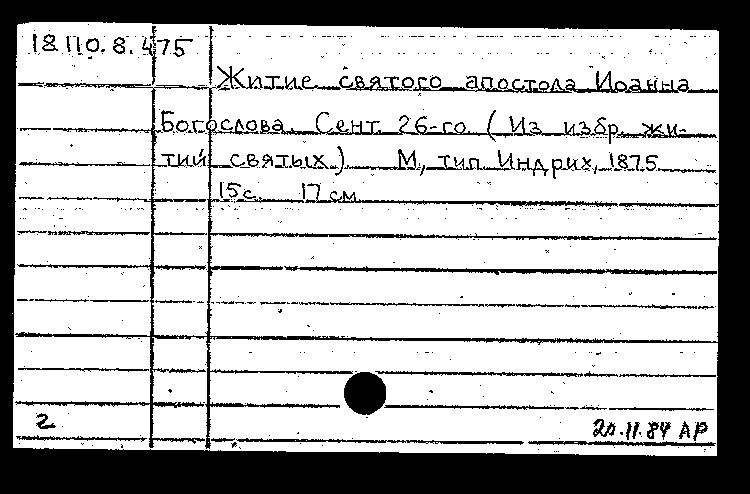 18 110.8.475
Житие святого апостола Иоанна
Богослова. Сент. 26-го. (Из избр. жи-
тий святых.) М., тип. Индрих, 1875.
15 с. 17 см.
2
20.11.84 АР